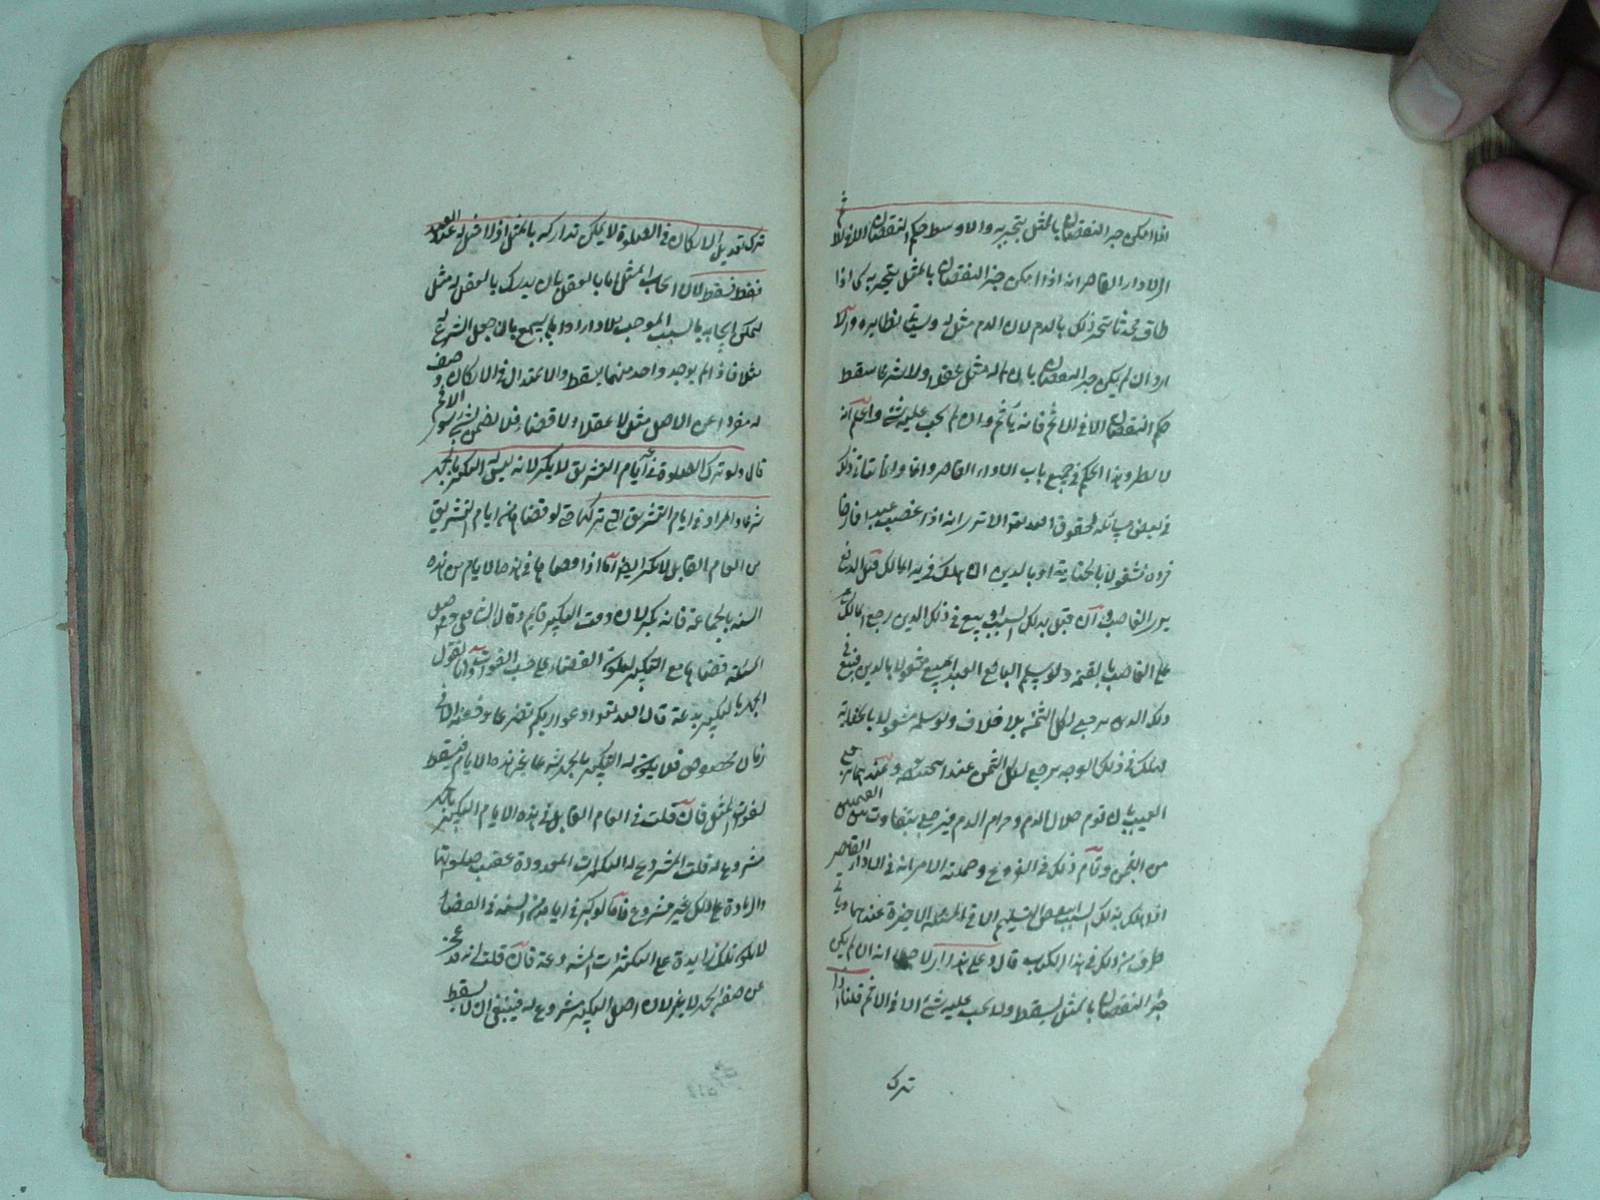 اذا امكن جبر النقصان بالمثل ينجبر به والا وسقط حكم النقصان الا في الاثم
الاداء القاصر انه اذا امكن جبر النقصان بالمثل ينجبر به كما اذا
طاف محدثا ينجبر ذلك بالدم لان الدم مثل له وسيأتي نظايره والا
اي وان لم يكن جبر النقصان بان لم يكن له مثل عقلا ولا شرعا سقط
حكم النقصان الا في الاثم فانه يأثم وان لم يجب عليه شي واعلم انه
لا يطرد هذا الحكم في جميع باب الاداء القاصر وانما يتأتى ذلك
في بعض مسائله لحقوق الله تعالى الا ترى انه اذا غصب عبدا فارغا
فرده مشغولا بالجناية او بالدين ان هلك في يد المالك قبل الدفع
يبرأ الغاصب وان قتل بذلك السبب او بيع في ذلك الدين رجع المالك
على الغاصب بالقيمة ولو سلم البائع العبد المبيع مشغولا بالدين فبيع في
ذلك الدين يرجع بكل الثمن بلا خلاف ولو سلمه مشغولا بالجناية
فهلك في ذلك الوجه يرجع بكل الثمن عند ابي حنيفة وعندهما يرجع
العيب بان يقوم حلال الدم وحرام الدم فيرجع بتفاوت القيمتين
من الثمن وتمام ذلك في الفروع وجملة الامر انه في الاداء القاصر
اذا هلك بذلك السبب
طرف من ذلك في هذا الكتاب قال وعلى هذا الاصل انه ان لم يكن
جبر النقصان بالمثل يسقط ولا يجب عليه شي الا في الاثم قلنا اذا
ترك
ترك تعديل الاركان في الصلوة لا يمكن تداركه بالمثل اذ لا مثل له عند العبد
فقط فسقط لان ايجاب المثل اما بالعقل بان يدرك بالعقل له مثل
يمكن ايجابه بالسبب الموجب للاداء واما بالسمع بان جعل الشرع له
مثلا فاذا لم يوجد واحد منهما يسقط والاعتدال في الاركان وصف
له مفردا عن الاصل مثل لا عقلا ولا قضاء فلا يضمن بشي سوى الاثم
قال ولو ترك الصلوة في ايام التشريق لا يكبر لانه ليس له التكبير بالجهر
شرعا والمراد في ايام التشريق التي تركها حتى لو قضاها من ايام التشريق
من العام القابل لا يكبر ايضا اما اذا قضاها في هذه الايام من هذه
السنة بالجماعة فانه يكبر لان وقت التكبير قايم وقال الشافعي
قضاها مع التكبير
الجهر بالتكبير بدعة قال الله تعالى ادعوا ربكم تضرعا وخفية الا في
زمان مخصوص فلا يكون له التكبير بالجهر شرعا في غير هذه الايام فيسقط
لفوات المثل فان قلت في العام القابل في هذه الايام التكبير بالجهر
مشروعا له قلت المشروع له التكبيرات المعدودة عقيب صلوتها
والزيادة على ذلك غير مشروع فاما لو كبر في ايام من السنة في القضاء
لا يكون ذلك زايدة على التكبيرات المشروعة فان قلت انه قد عجز
عن صفة الجهر لا غير لان اصل التكبير مشروع له فينبغي ان لا يسقط